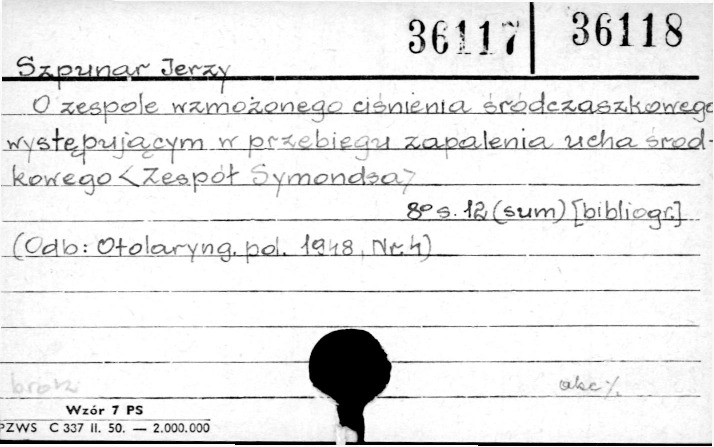 36117 36118
Szpunar Jerzy
O zespole wzmożonego ciśnienia śródczaszkowego
występującym w przebiegu zapalenia ucha środ-
kowego <Zespół Symondsa>
8º s. 12 (sum) [bibliogr.]
(Odb: Otolaryng. pol. 1948, Nr. 4)
brosz
akc %.
Wzór 7 PS
PZWS C 337 II. 50. — 2.000.000